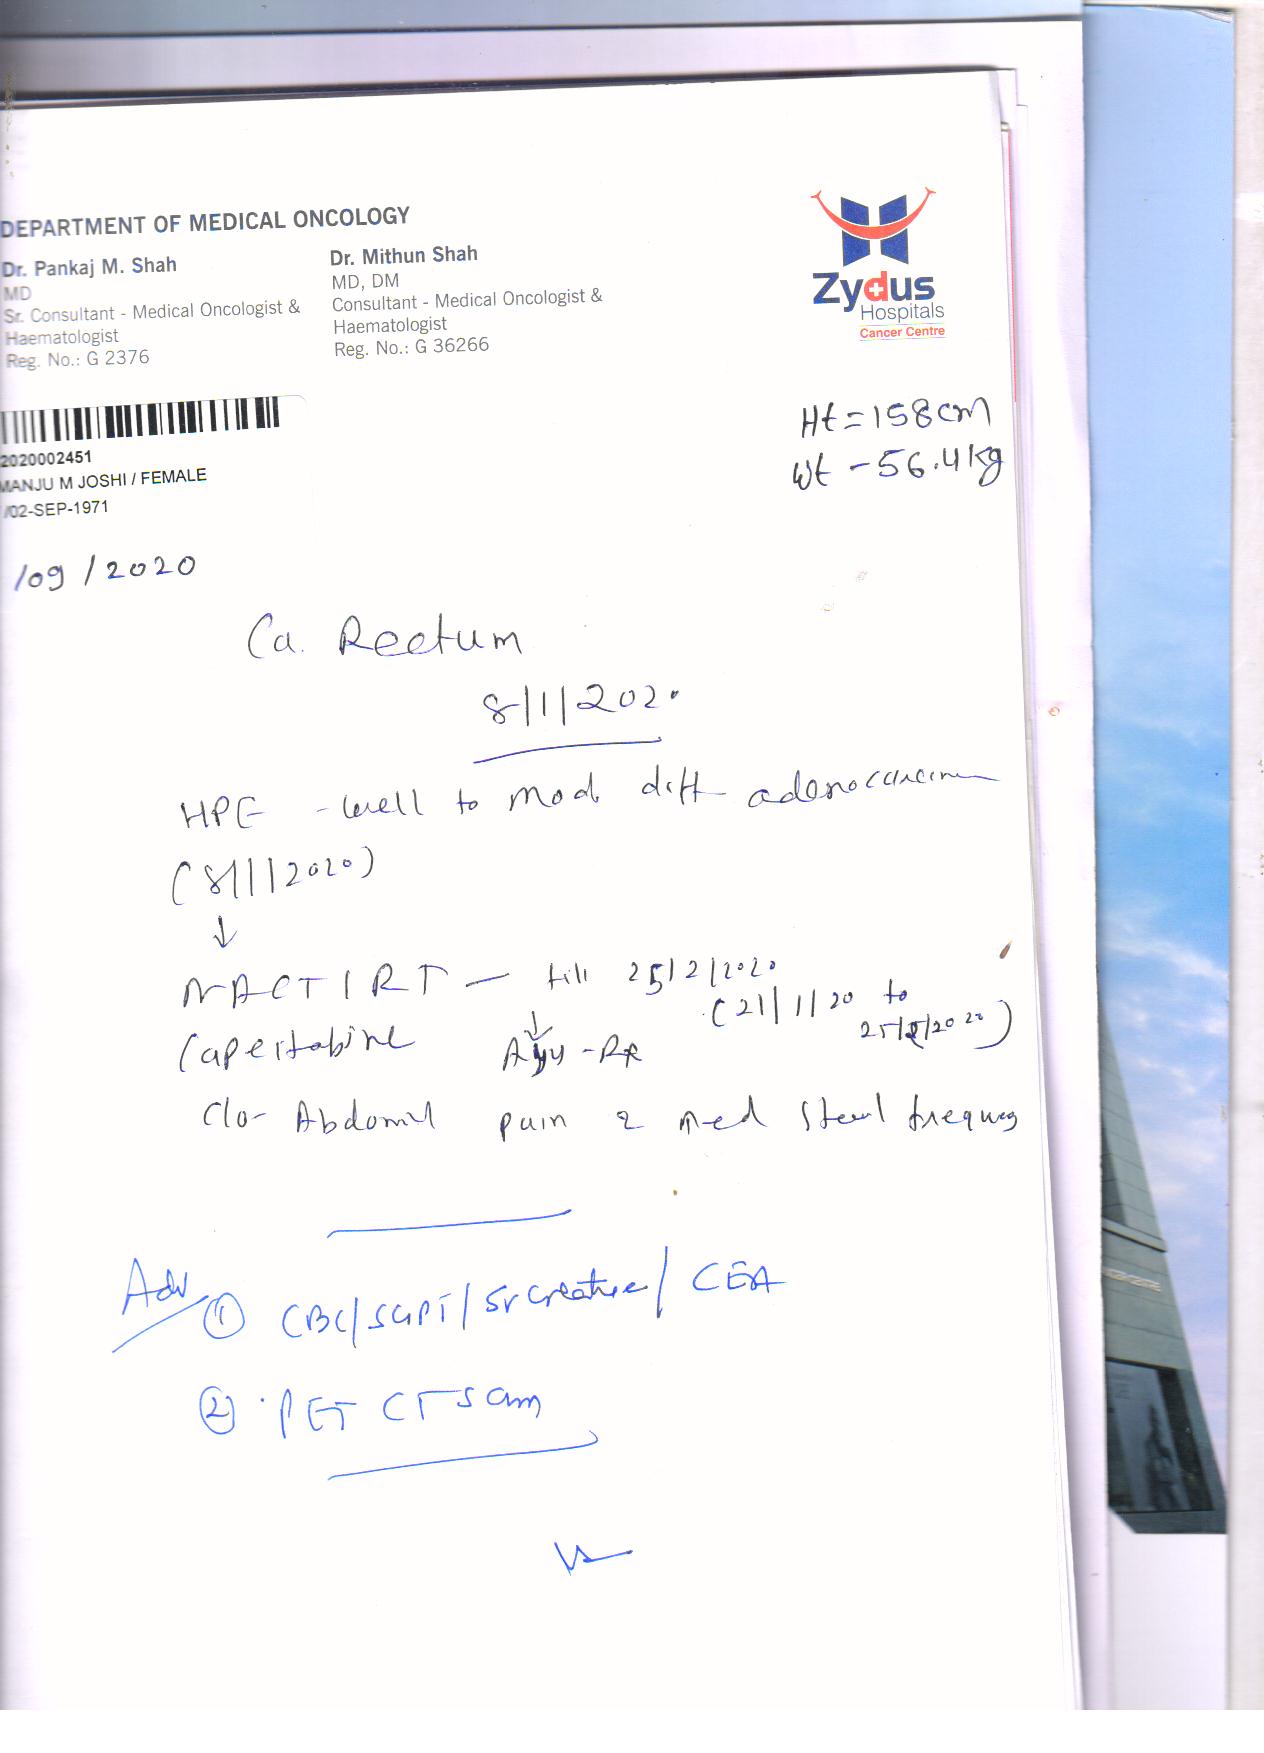 DEPARTMENT OF MEDICAL ONCOLOGY
Dr. Pankaj M. Shah
MD
Sr. Consultant - Medical Oncologist &
Haematologist
Reg. No.: G 2376
Dr. Mithun Shah
MD, DM
Consultant - Medical Oncologist &
Haematologist
Reg. No.: G 36266
Zydus
Hospitals
Cancer Centre
2020002451
MANJU M JOSHI / FEMALE
/02-SEP-1971
Ht = 158cm
Wt - 56.4kg
/09/2020
Ca. Rectum
8/1/2020
HPE - well to mod diff adenocarcinoma
(8/1/2020)
↓
NACT/RT - till 25/2/2020
(21/1/20 to
25/2/2020)
Capecitabine
↓
Ayu-Rx
C/o - Abdominal pain & stool frequency
Adv
① CBC/SGPT/Sr Creatinine/CEA
② PET CT Scan